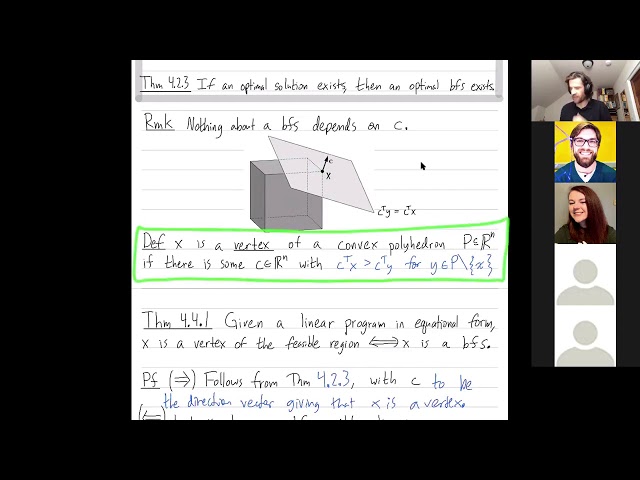 Thm 4.2.3 If an optimal solution exists, then an optimal bfs exists.
Rmk Nothing about a bfs depends on c.
c
x
cᵀy = cᵀx
Def x is a vertex of a convex polyhedron P⊆ℝⁿ
if there is some c∈ℝⁿ with cᵀx > cᵀy for y∈P\{x}
Thm 4.4.1 Given a linear program in equational form,
x is a vertex of the feasible region ⟺ x is a bfs.
Pf (⇒) Follows from Thm 4.2.3, with c to be
the direction vector giving that x is a vertex.
(⇐)